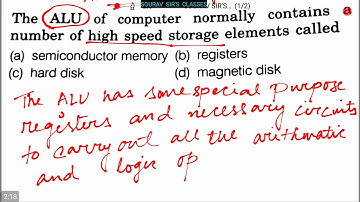 SOURAV SIR'S CLASSES SIR'S.. (1/2)
The ALU of computer normally contains a
number of high speed storage elements called
(a) semiconductor memory (b) registers
(c) hard disk (d) magnetic disk
The ALU has some special purpose
registers and necessary circuits
to carry out all the arithmatic
and logic op
2:18